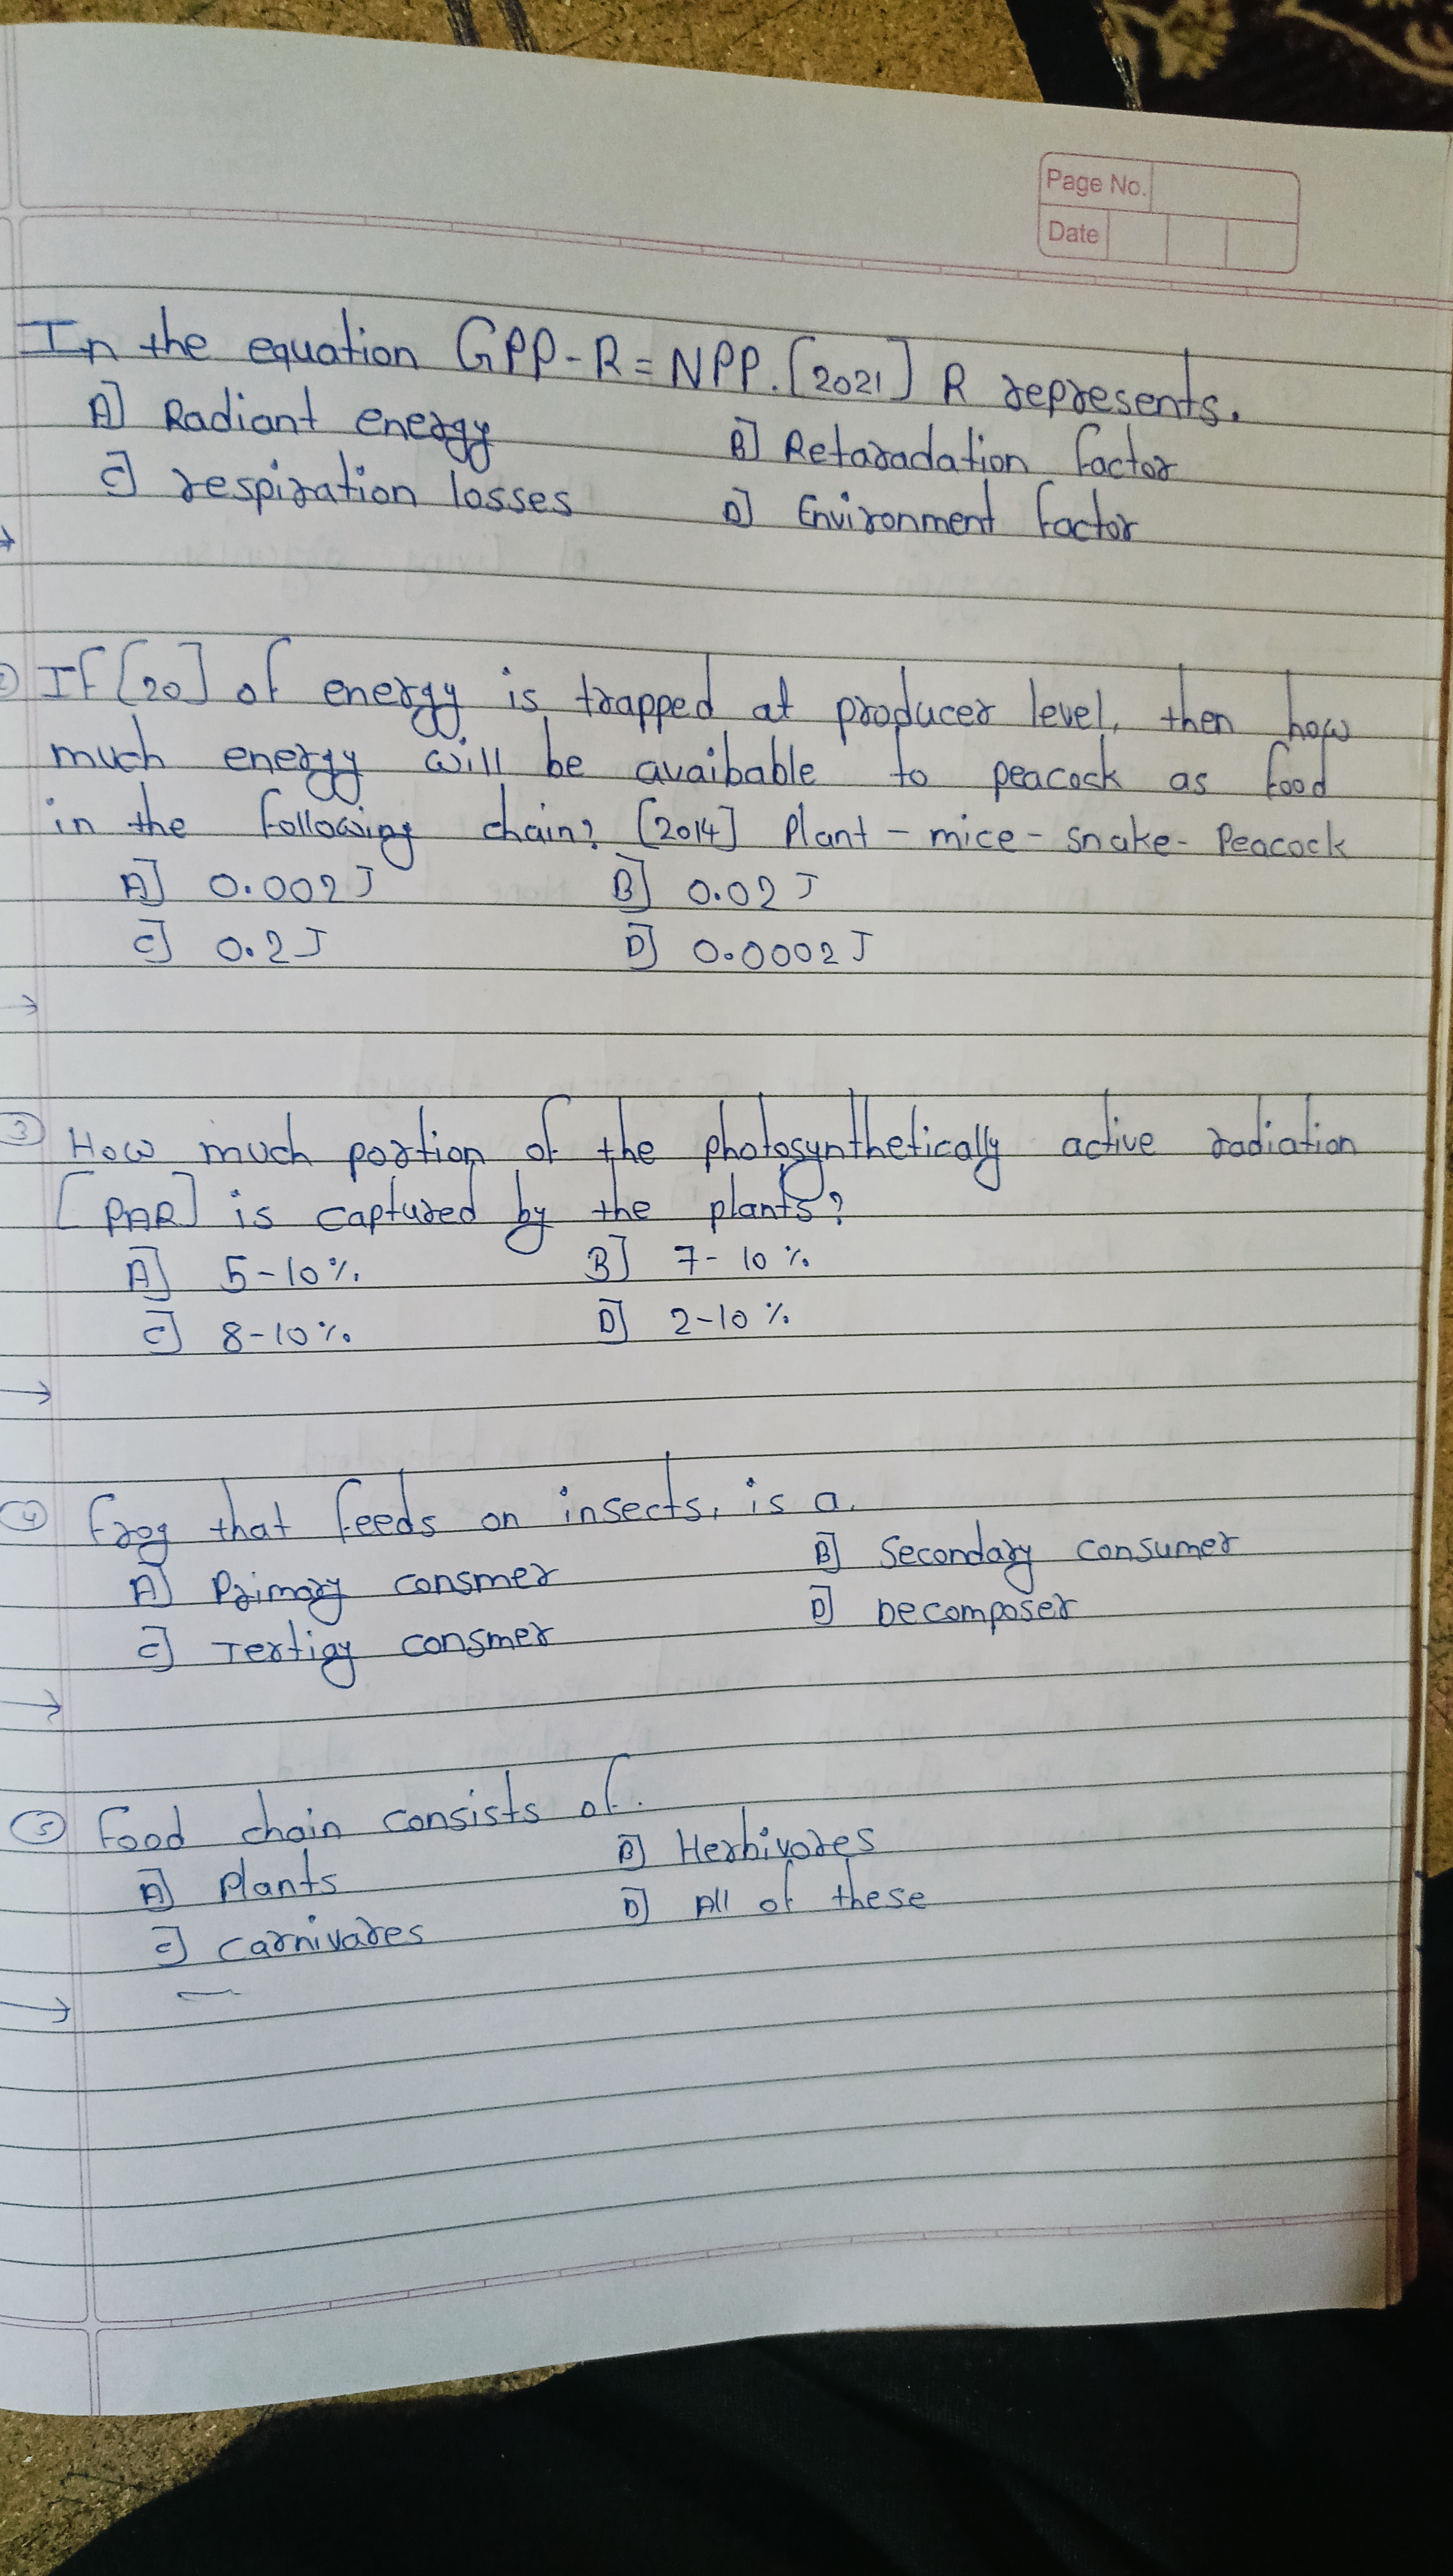 Page No.
Date
In the equation GPP-R=NPP.[2021] R represents.
A] Radiant energy B] Retaradation factor
C] respiration losses D] Environment factor
→
2) If [20] of energy is trapped at producer level, then how
much energy will be avaibable to peacock as food
in the following chain? [2014] Plant - mice - snake - Peacock
A] 0.002J B] 0.02J
C] 0.2J D] 0.0002J
→
3) How much portion of the photosynthetically active radiation
[PAR] is captured by the plants?
A] 5-10% B] 7-10%
C] 8-10% D] 2-10%
→
4) Frog that feeds on insects, is a.
A] Primary consmer B] Secondary consumer
C] Tertiay consmer D] Decomposer
→
5) Food chain consists of.
A] Plants B] Herbivores
C] Carnivares D] All of these
→